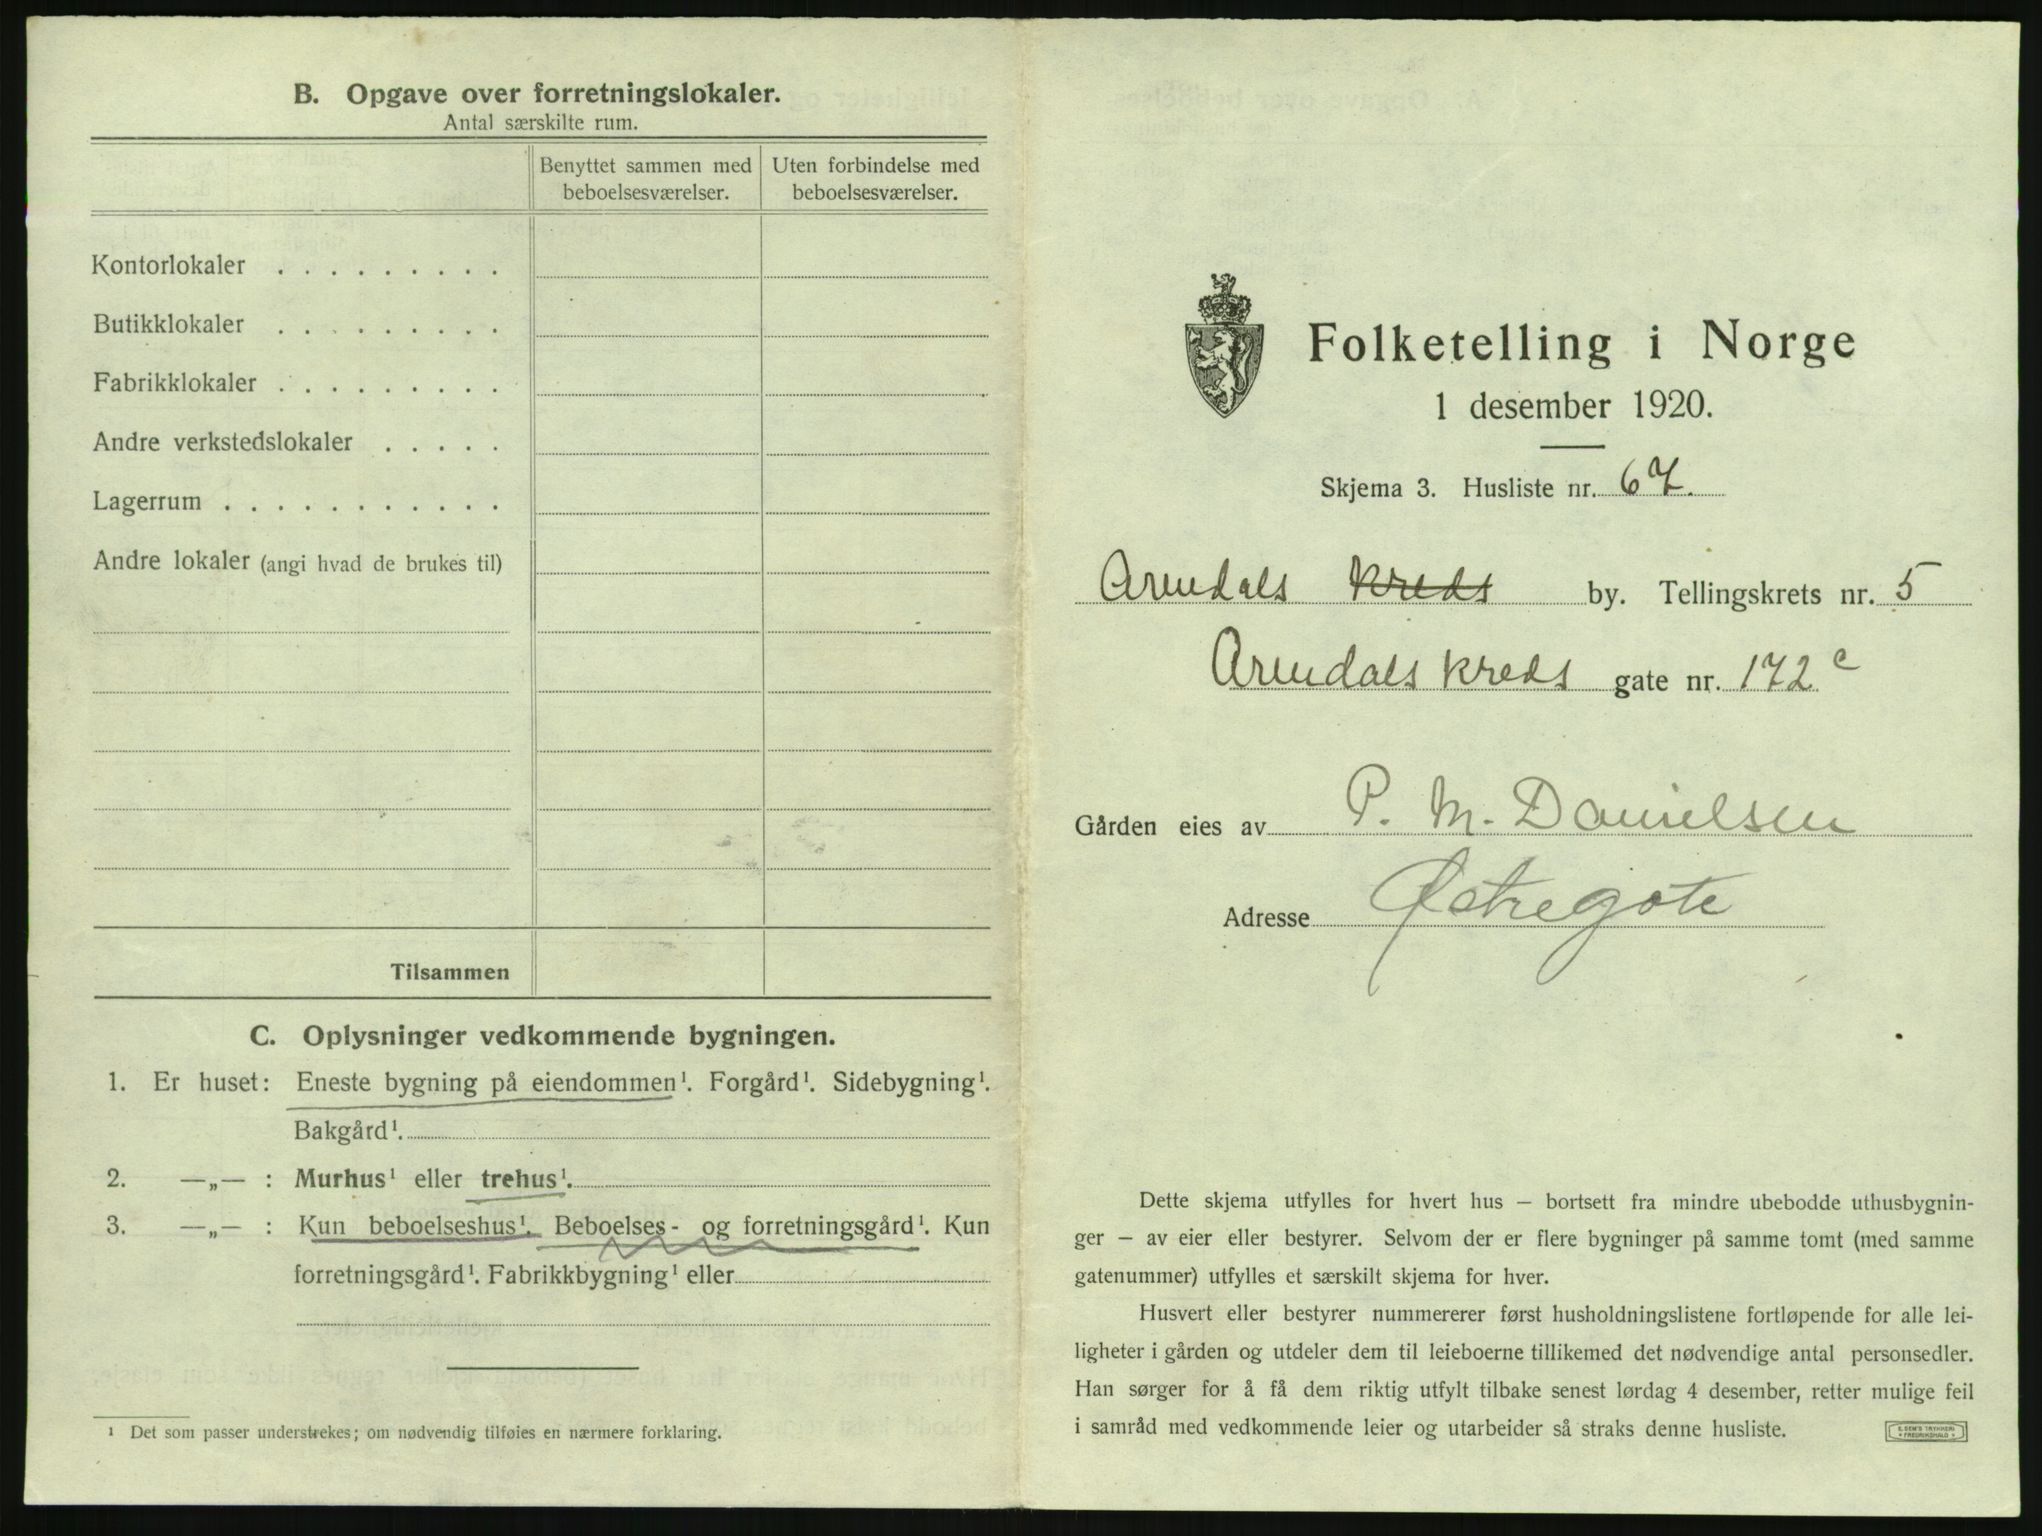 B. Opgave over forretningslokaler.
Antal særskilte rum.
Benyttet sammen med beboelsesværelser.
Uten forbindelse med beboelsesværelser.
Kontorlokaler . . . . . . . . .
Butikklokaler . . . . . . . . .
Fabrikklokaler . . . . . . . . .
Andre verkstedslokaler . . . . .
Lagerrum . . . . . . . . . . .
Andre lokaler (angi hvad de brukes til)
Tilsammen
C. Oplysninger vedkommende bygningen.
1. Er huset: Eneste bygning på eiendommen¹. Forgård¹. Sidebygning¹.
Bakgård¹.
2. —„— : Murhus¹ eller trehus¹.
3. —„— : Kun beboelseshus¹. Beboelses- og forretningsgård¹. Kun
forretningsgård¹. Fabrikkbygning¹ eller
¹ Det som passer understrekes; om nødvendig tilføies en nærmere forklaring.
Folketelling i Norge
1 desember 1920.
Skjema 3. Husliste nr. 67.
Arendals kreds by. Tellingskrets nr. 5
Arendals kreds gate nr. 172c
Gården eies av P. M. Danielsen
Adresse Østregate
Dette skjema utfylles for hvert hus — bortsett fra mindre ubebodde uthusbygnin-
ger — av eier eller bestyrer. Selvom der er flere bygninger på samme tomt (med samme
gatenummer) utfylles et særskilt skjema for hver.
Husvert eller bestyrer nummererer først husholdningslistene fortløpende for alle lei-
ligheter i gården og utdeler dem til leieboerne tillikemed det nødvendige antal personsedler.
Han sørger for å få dem riktig utfylt tilbake senest lørdag 4 desember, retter mulige feil
i samråd med vedkommende leier og utarbeider så straks denne husliste.
E. SEM'S TRYKKERI
FREDRIKSHALD